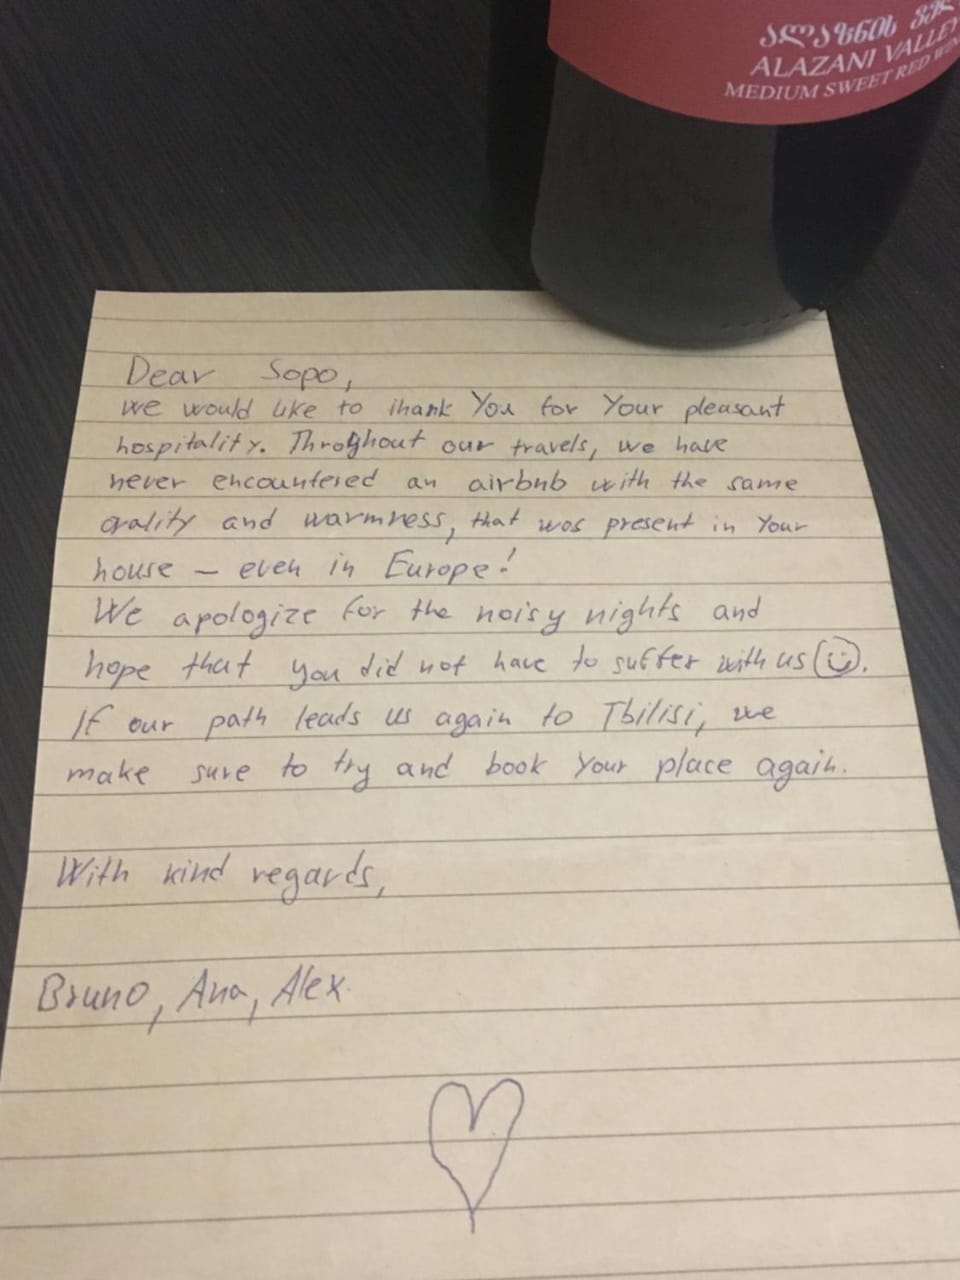 ალაზნის ველ
ALAZANI VALLEY
MEDIUM SWEET RED WIN
Dear Sopo,
we would like to thank You for Your pleasant
hospitality. Throghout our travels, we have
never encountered an airbnb with the same
qality and warmness, that was present in Your
house – even in Europe!
We apologize for the noisy nights and
hope that you did not have to suffer with us ☺.
If our path leads us again to Tbilisi, we
make sure to try and book Your place again.
With kind regards,
Bruno, Ana, Alex.